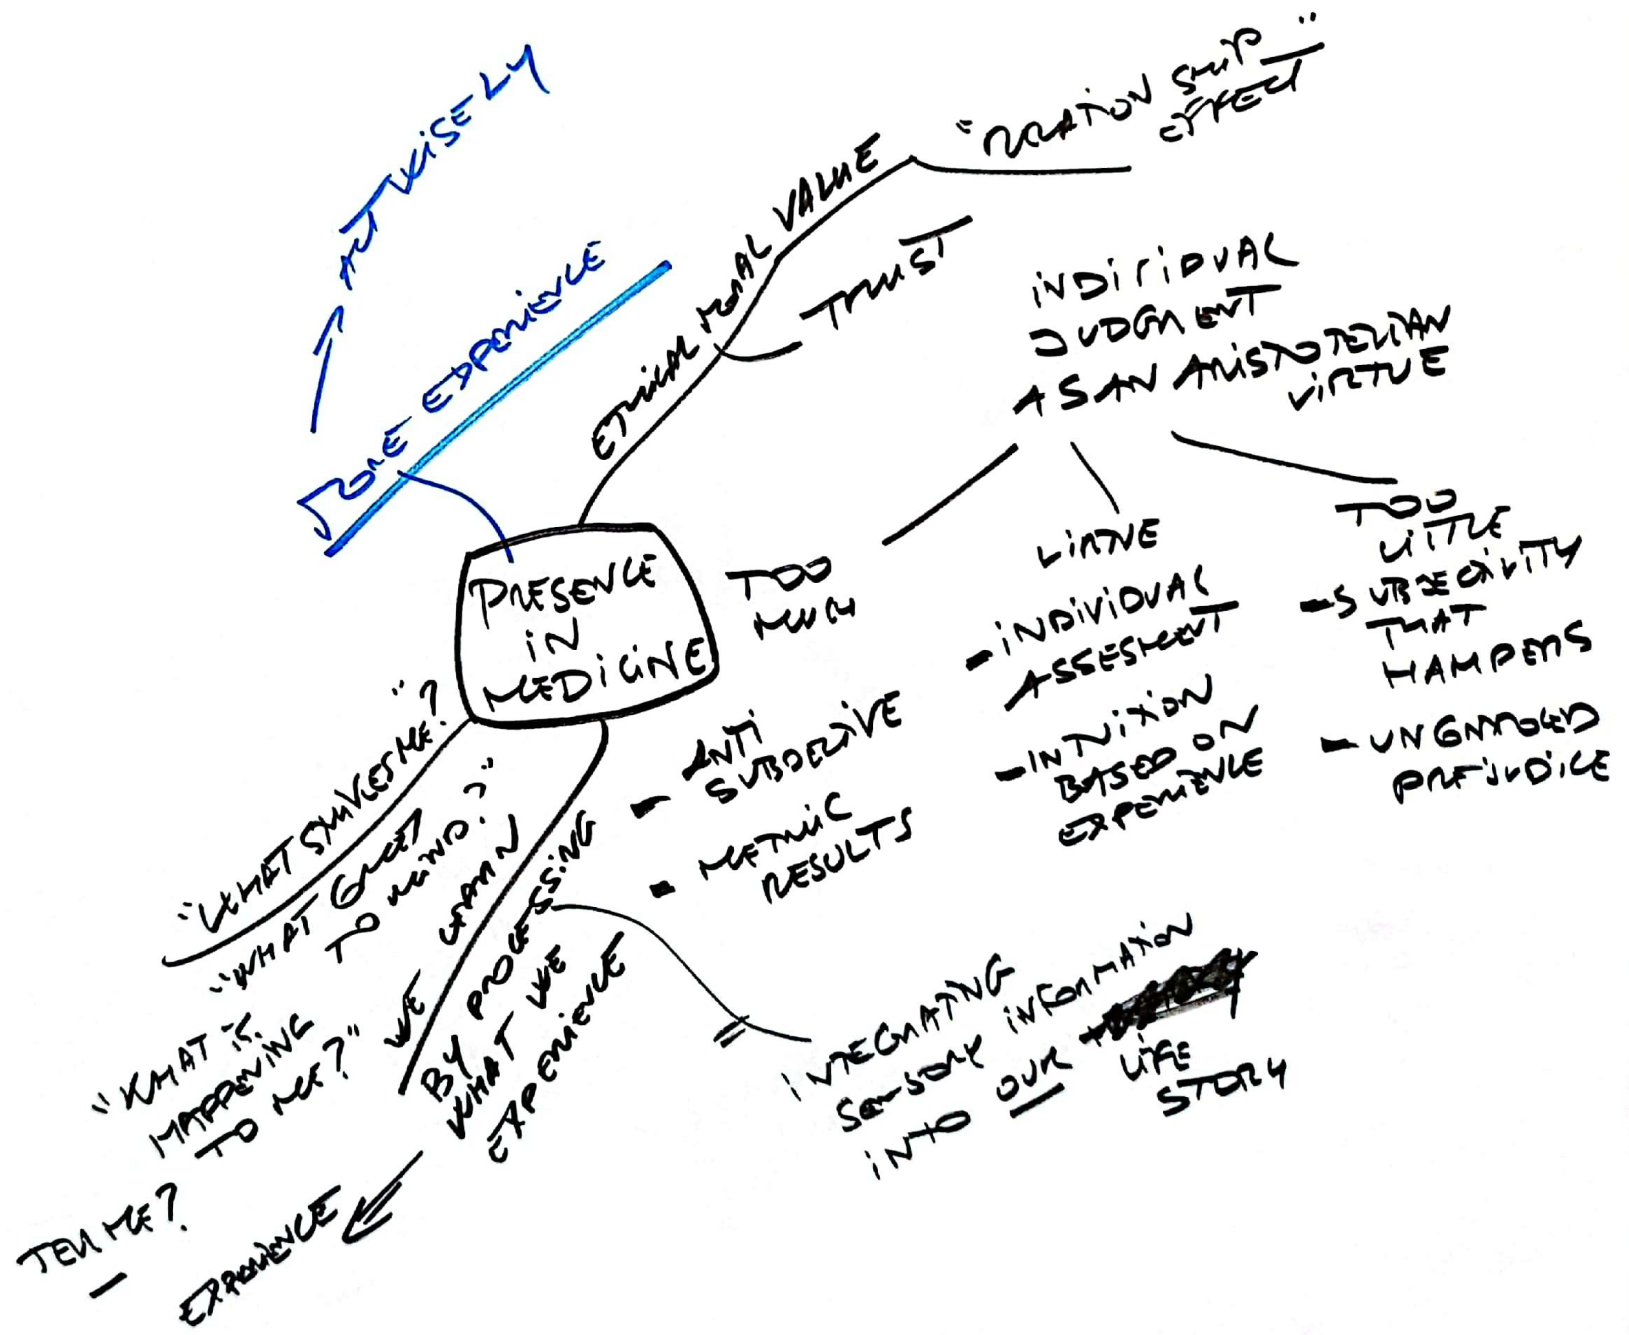 ACT WISELY
MORE EXPERIENCE
ETHICAL MORAL VALUE
"RELATION SHIP"
EFFECT
TRUST
INDIVIDUAL
JUDGMENT
AS AN ARISTOTELIAN
VIRTUE
PRESENCE
IN
MEDICINE
TOO
MUCH
- ANTI
SUBJECTIVE
- METRIC
RESULTS
VIRTUE
- INDIVIDUAL
ASSESMENT
- INTUITION
BASED ON
EXPERIENCE
TOO
LITTLE
- SUBJECTIVITY
THAT
HAMPERS
- UNGROUNDED
PREJUDICE
"WHAT STRIKES ME?"
"WHAT COMES
TO MIND?"
"WHAT IS
HAPPENING
TO ME?"
TELL ME?
WE LEARN
BY PROCESSING
WHAT WE
EXPERIENCE
EXPERIENCE
INTEGRATING
SENSORY INFORMATION
INTO OUR
LIFE
STORY